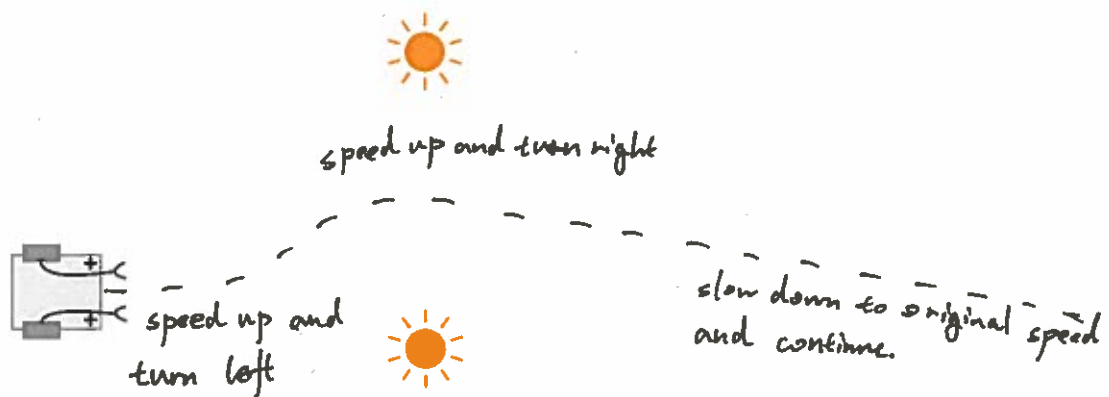 speed up and turn right
+
+
speed up and
turn left
slow down to original speed
and continue.